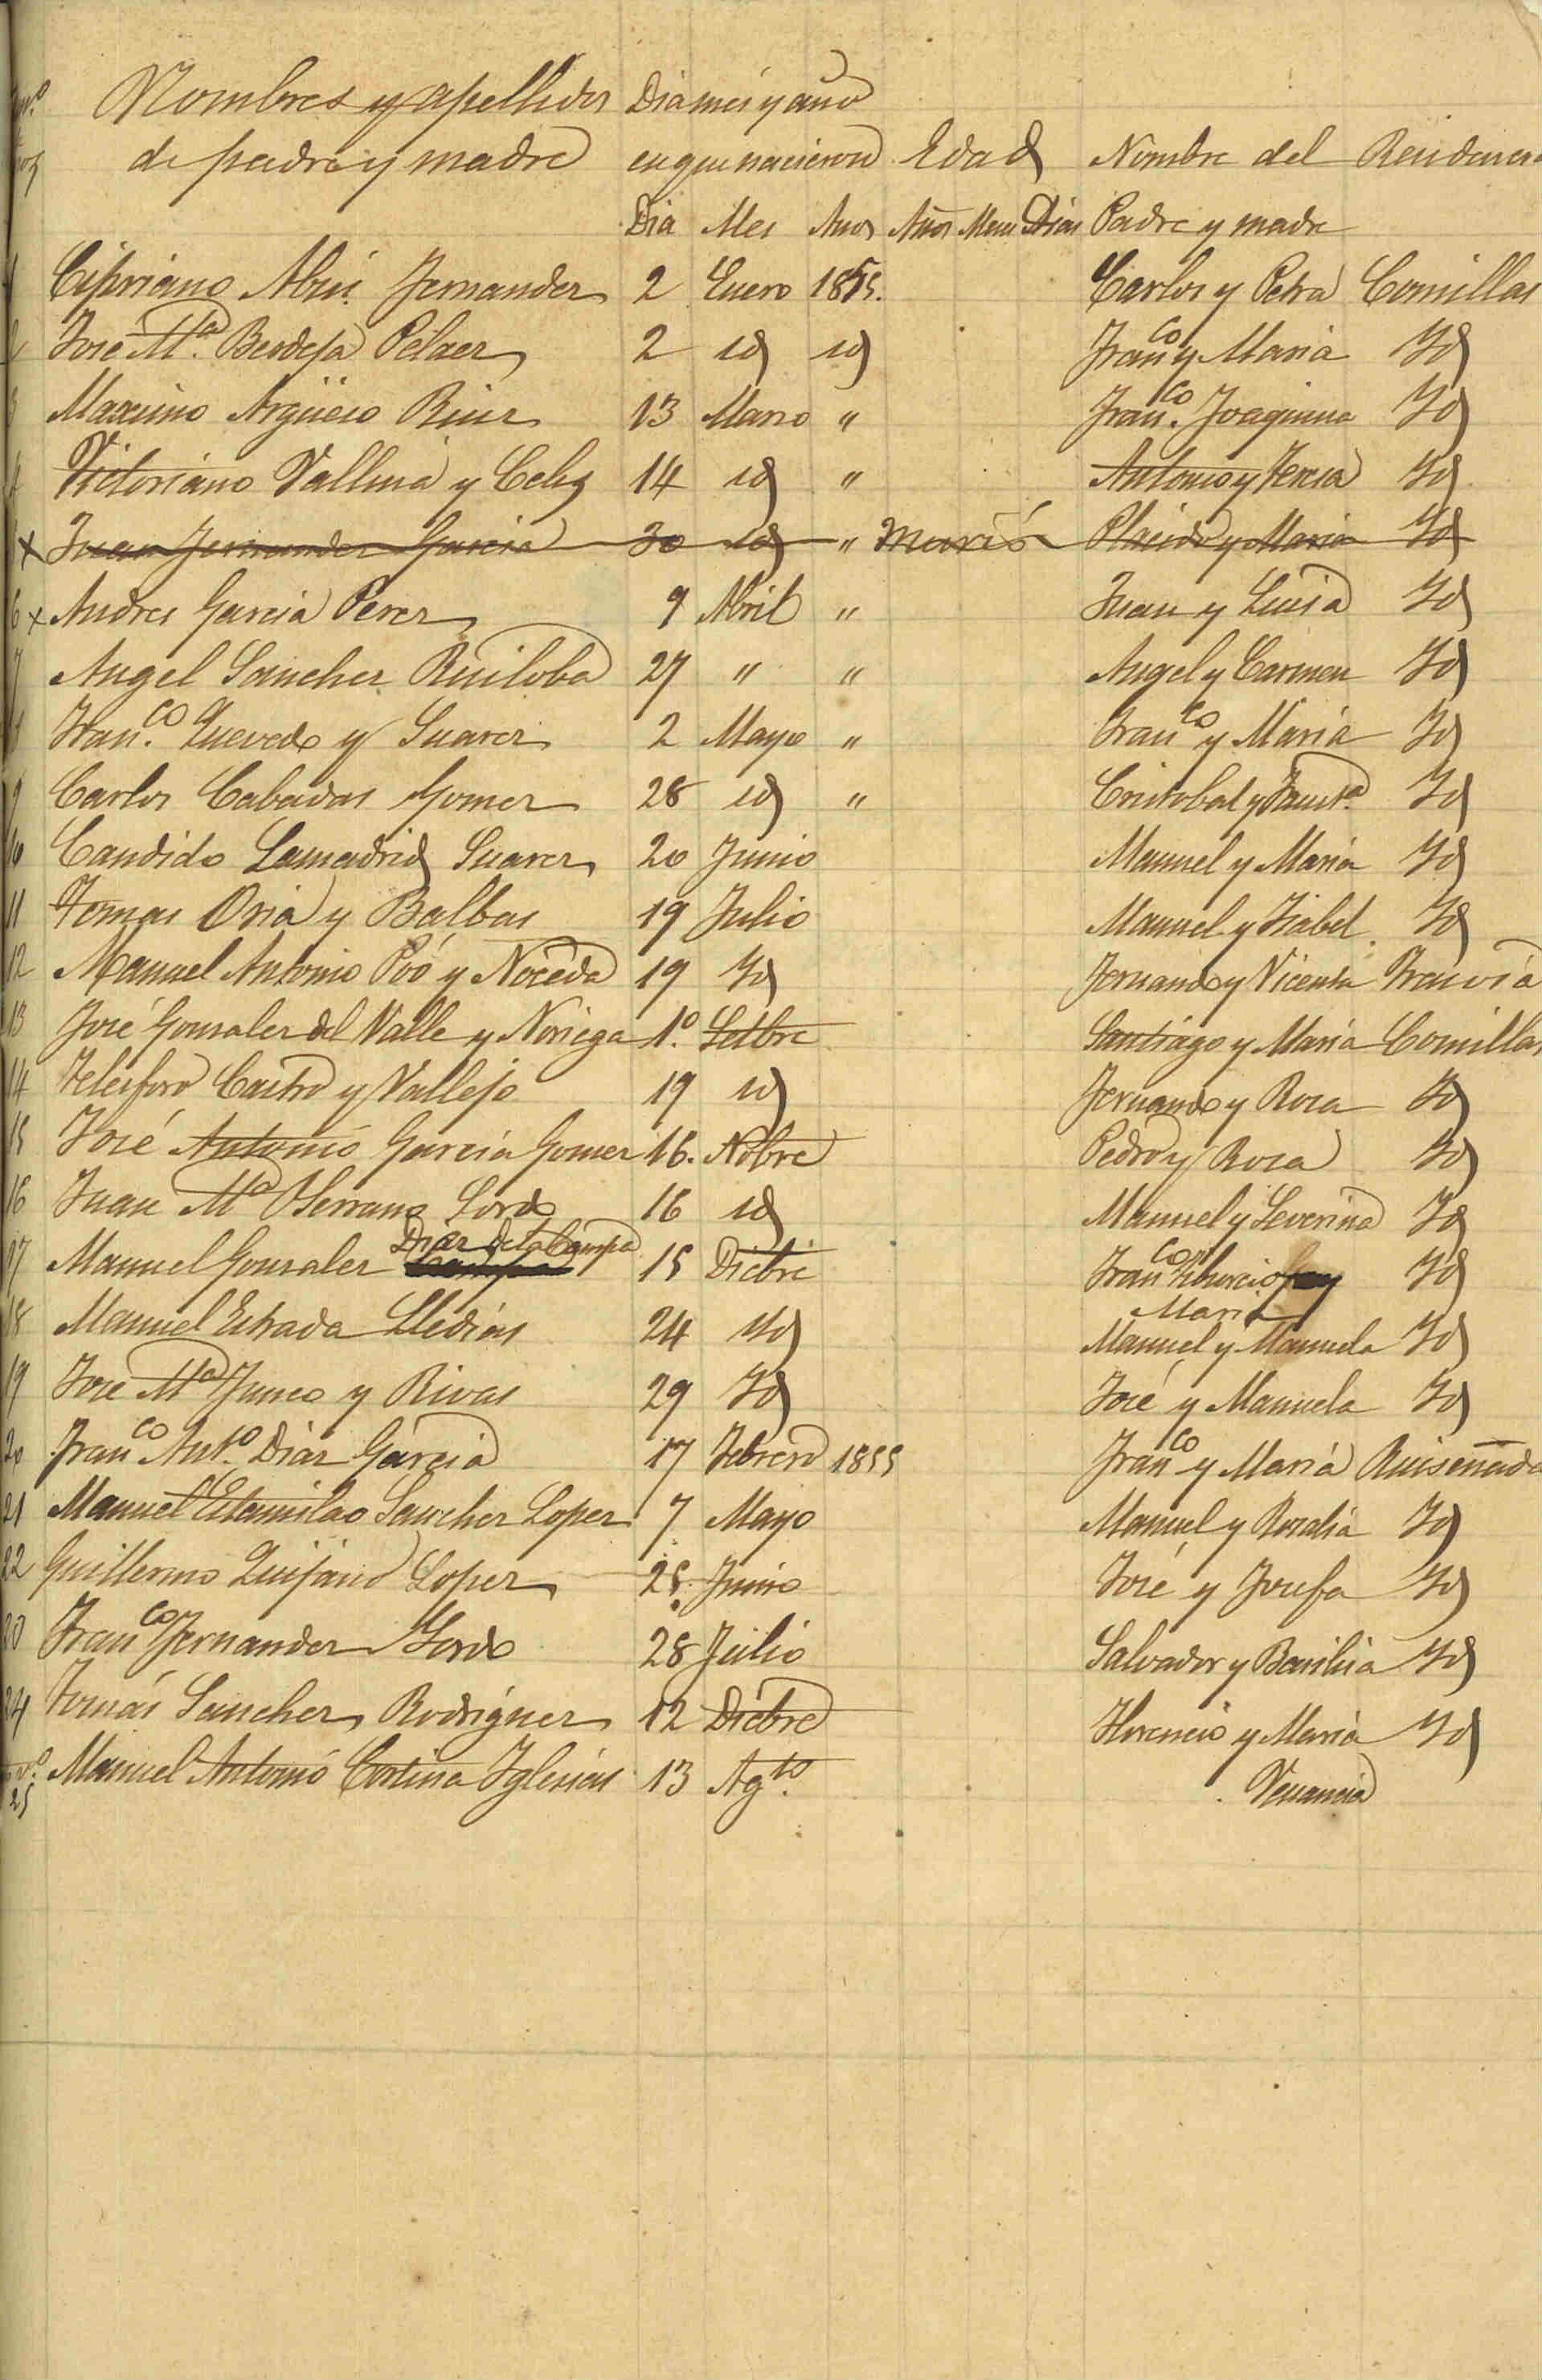 Nombres y apellidos Dia mes y año
de padre y madre en que nacieron Edad Nombre del Residencia
Dia Mes Años Años Mess Dias Padre y madre
Cipriano Abin Fernandez 2 Enero 1855. Carlos y Petra Comillas
José Mª. Berdeja Pelaez 2 id id Franco y Maria Id
Maximo Argüeso Ruiz 13 Marzo " Franco. Joaquina Id
4 Victoriano Vallina y Celis 14 id " Antonio y Teresa Id
x Juan Fernandez Garcia 30 id " Murió Placido y Maria Id
6 x Andres Garcia Perez 9 Abril " Juan y Luisa Id
7 Angel Sanchez Ruiloba 27 " " Angel y Carmen Id
8 Franco. Quevedo y Suarez 2 Mayo " Franco y Maria Id
9 Carlos Cabadas Gomez 28 id " Cristobal y Fausta. Id
10 Candido Lamadrid Suarez 20 Junio Manuel y Maria Id
11 Tomas Oria y Balbas 19 Julio Manuel y Isabel Id
12 Manuel Antonio Póo y Noceda 19 Id Fernando y Vicenta Trasvia
13 José Gonzalez del Valle y Noriega 1º. Setbre Santiago y Maria Comillas
14 Telesforo Castro y Vallejo 19 id Fernando y Rosa Id
15 José Antonio Garcia Gomez 16. Nobre Pedro y Rosa Id
16 Juan Mª Serrano Gordo 16 id Manuel y Severina Id
Diaz de la Campa
17 Manuel Gonzalez 15 Dicbre Franco Tiburcio y Id
Maria
18 Manuel Estrada Lledias 24 Id Manuel y Manuela Id
19 José Mª Junco y Rivas 29 Id José y Manuela Id
20 Franco Anto. Diaz Garcia 17 Febrero 1855 Franco y Maria Ruiseñada
21 Manuel Estanislao Sanchez Lopez 7 Mayo Manuel y Rosalia Id
22 Guillermo Quijano Lopez 25. Junio José y Josefa Id
23 Franco Fernandez Gordo 28 Julio Salvador y Basilisa Id
24 Tomás Sanchez Rodriguez 12 Dicbre Florencio y Maria Id
nº. 25 Manuel Antonio Cortina Iglesias 13 Agto. Venancia